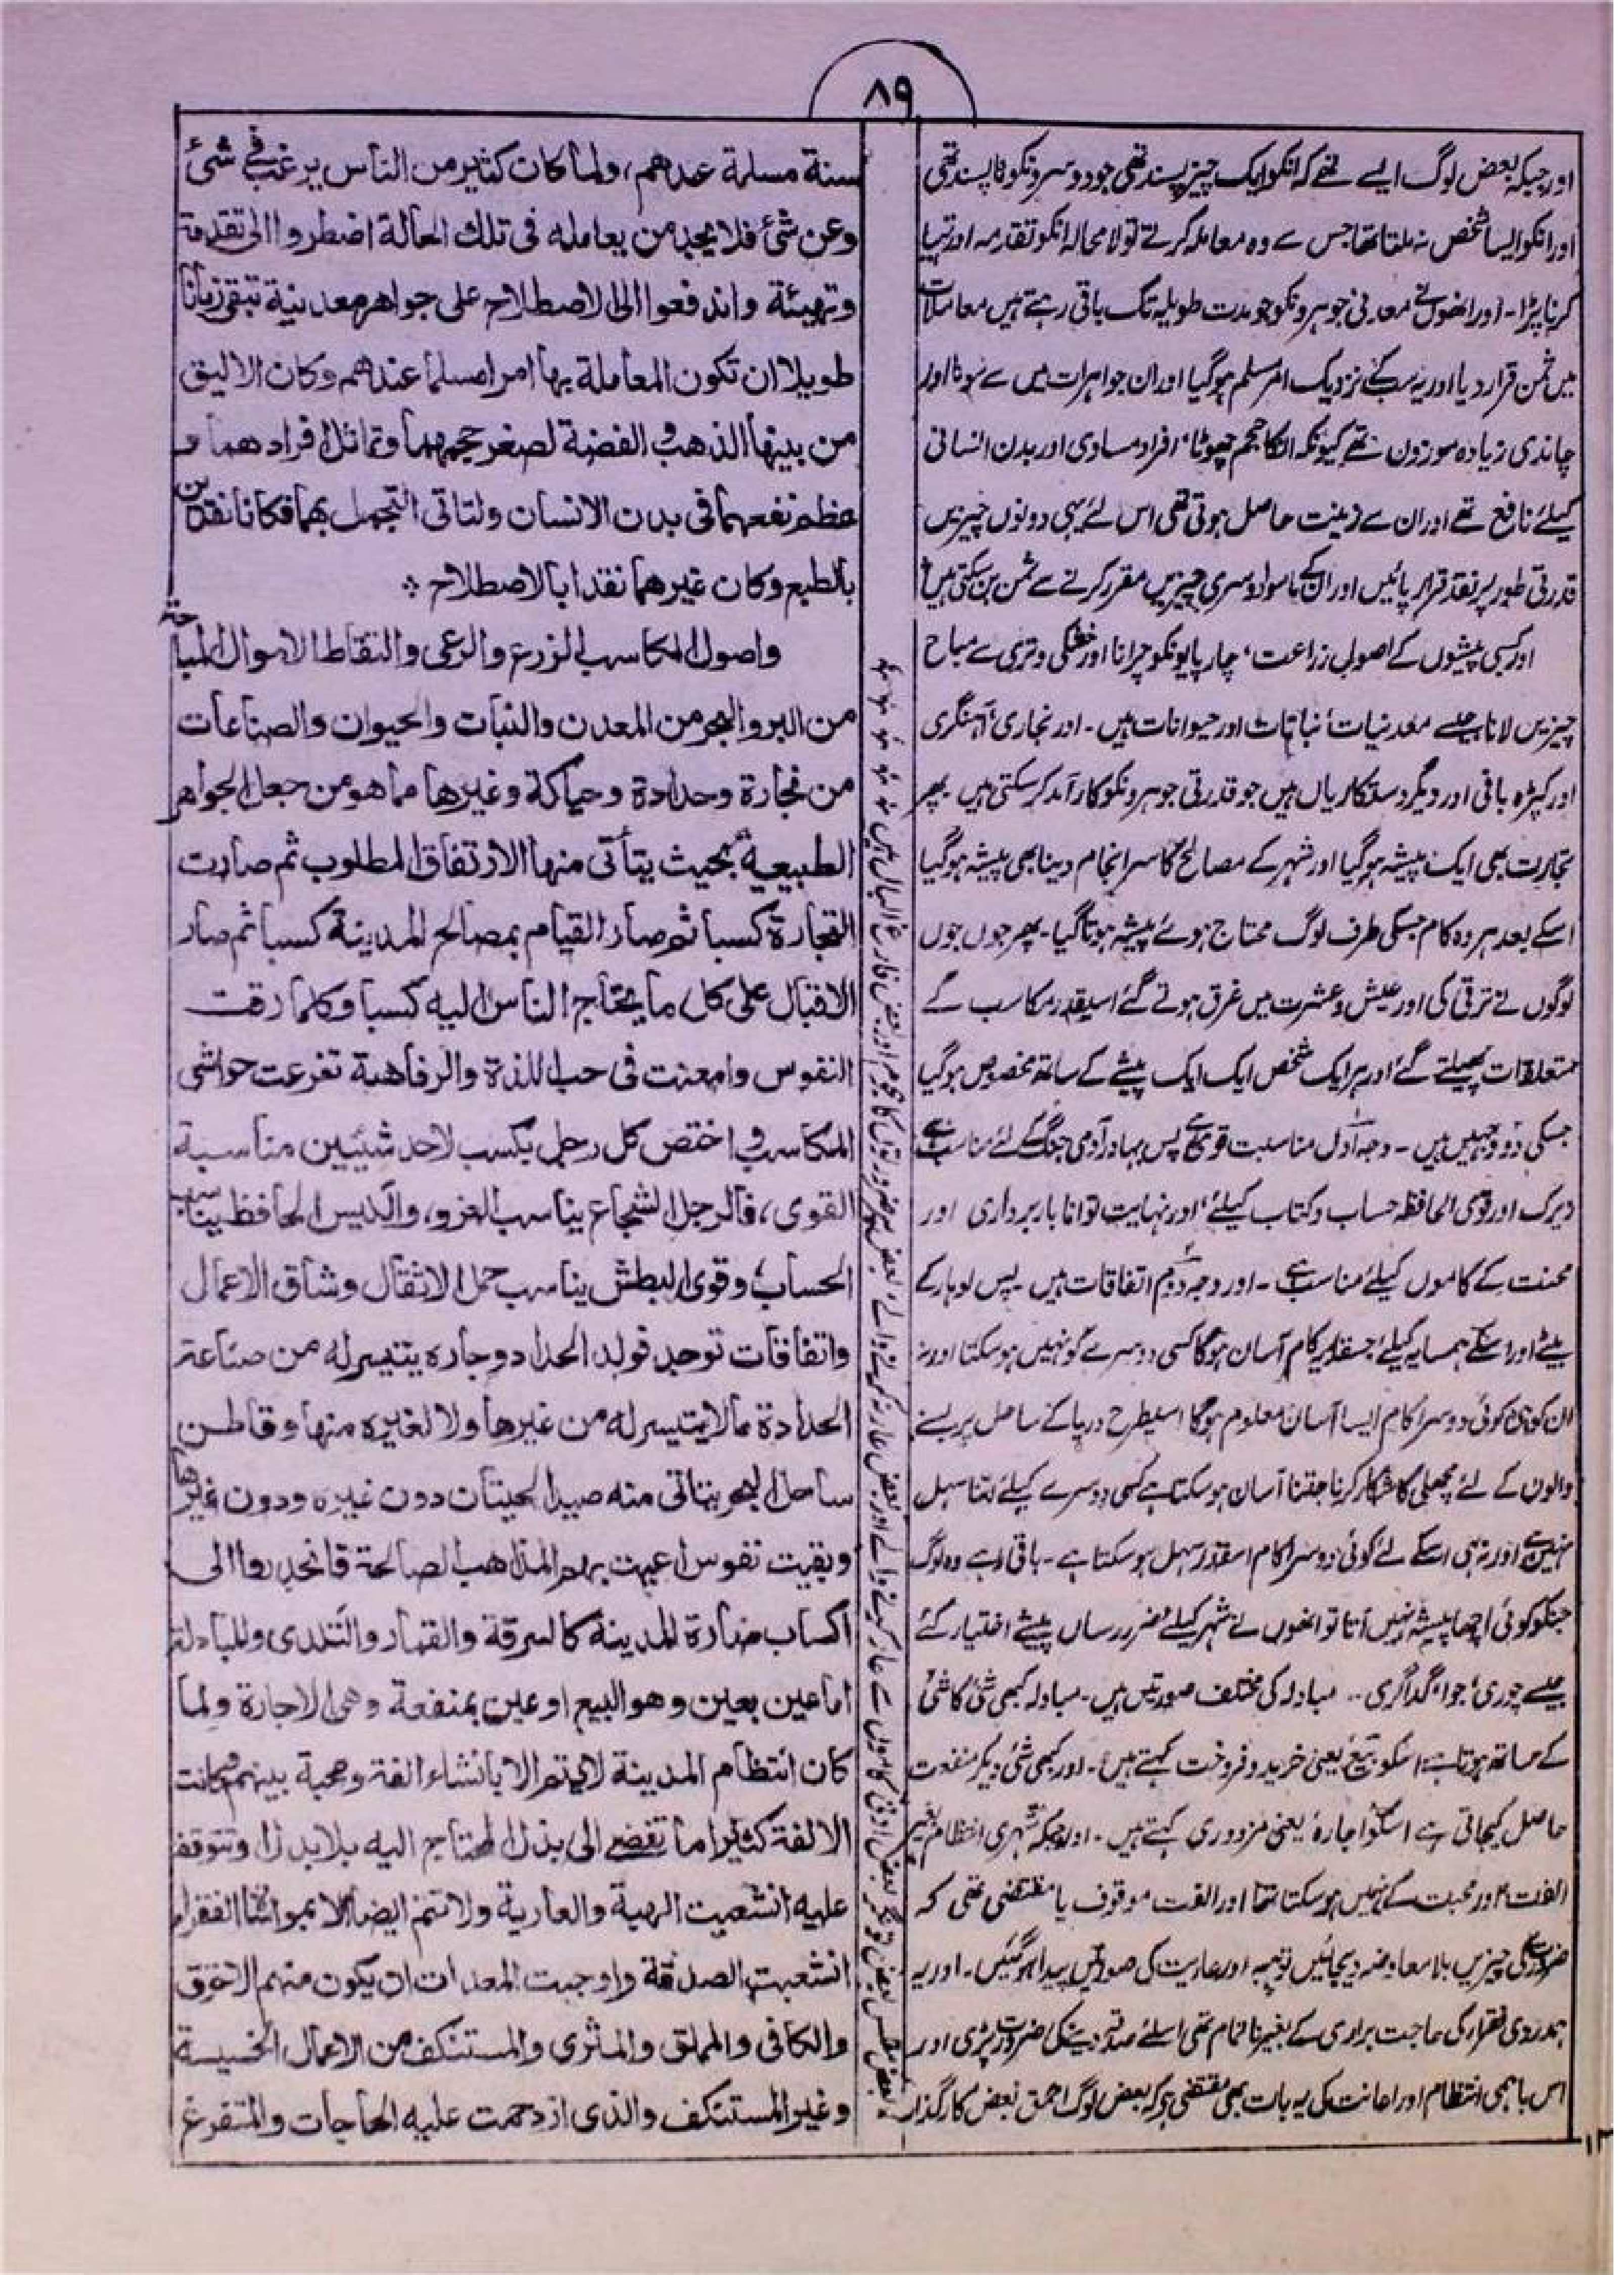 ٨٩
اور جبکہ بعض لوگ ایسے تھے کہ انکو ایک چیز پسند تھی جو دوسرونکو ناپسند تھی
اور انکو ایسا شخص نہ ملتا تھا جس سے وہ معاملہ کرتے تو لا محالہ انکو تقدمہ اور تہیا
کرنا پڑا۔ اور انھوں نے معدنی جوہرونکو جو مدت طویلہ تک باقی رہتے ہیں معاملات
میں ثمن قرار دیا اور یہ سبکے نزدیک امر مسلم ہوگیا اور ان جواہرات میں سے سونا اور
چاندی زیادہ موزون تھے کیونکہ انکا حجم چھوٹا، افراد مساوی اور بدن انسانی
کیلئے نافع تھے اور ان سے زینت حاصل ہوتی تھی اس لئے یہی دونوں چیزیں
قدرتی طور پر نقد قرار پائیں اور انکے ماسوا دوسری چیزیں مقرر کرنے سے ثمن بن سکتی ہیں
اور کسبی پیشوں کے اصول زراعت، چارپایونکو چرانا اور خشکی و تری سے مباح
چیزیں لانا جیسے معدنیات، نباتات اور حیوانات ہیں۔ اور نجاری، آہنگری
اور کپڑہ بافی اور دیگر دستکاریاں ہیں جو قدرتی جوہرونکو کارآمد کر سکتی ہیں پھر
تجارت بھی ایک پیشہ ہوگیا اور شہر کے مصالح کا سر انجام دینا بھی پیشہ ہوگیا
اسکے بعد ہر وہ کام جسکی طرف لوگ محتاج ہوئے پیشہ ہوتا گیا۔ پھر جوں جوں
لوگوں نے ترقی کی اور عیش و عشرت میں غرق ہوتے گئے اسیقدر مکاسب کے
متعلقات پھیلتے گئے اور ہر ایک شخص ایک ایک پیشے کے ساتھ مخصوص ہوگیا
جسکی دو وجہیں ہیں۔ وجہ اول مناسبت قوی ہے پس بہادر آدمی جنگ کے لئے مناسب ہے
زیرک اور قوی الحافظہ حساب و کتاب کیلئے، اور نہایت توانا باربرداری اور
محنت کے کاموں کیلئے مناسب ہے۔ اور وجہ دوم اتفاقات ہیں۔ پس لوہار کے
بیٹے اور اسکے ہمسایہ کیلئے جسقدر یہ کام آسان ہوگا کسی دوسرے کو نہیں ہو سکتا اور نہ
ان کو کوئی دوسرا کام ایسا آسان معلوم ہوگا اسیطرح دریا کے ساحل پر بسنے
والوں کے لئے مچھلی کا شکار کرنا جتنا آسان ہو سکتا ہے کسی دوسرے کیلئے اتنا سہل
نہیں ہے اور نہ ہی اسکے لئے کوئی دوسرا کام اسقدر سہل ہو سکتا ہے۔ باقی رہے وہ لوگ
جنکو کوئی اچھا پیشہ نہیں آتا تو انھوں نے شہر کیلئے ضرر رساں پیشے اختیار کئے
جیسے چوری، جوا، گداگری۔ مبادلہ کی مختلف صورتیں ہیں۔ مبادلہ کبھی شئ کا شئ
کے ساتھ ہوتا ہے اسکو بیع یعنی خرید و فروخت کہتے ہیں۔ اور کبھی شئ دیکر منفعت
حاصل کیجاتی ہے اسکو اجارہ یعنی مزدوری کہتے ہیں۔ اور جبکہ شہری انتظام بغیر
الفت اور محبت کے نہیں ہو سکتا تھا اور الفت موقوف یا مقتضی تھی کہ
ضرورت کی چیزیں بلا معاوضہ دیجائیں تو ہبہ اور عاریت کی صورتیں پیدا ہو گئیں۔ اور یہ
ہمدردی فقراء کی حاجت براری کے بغیر ناتمام تھی اسلئے صدقہ دینیکی ضرورت پڑی اور
اس باہمی انتظام اور اعانت کی یہ بات بھی مقتضی ہے کہ بعض لوگ احمق، بعض کارگذار
بعض مفلس بعض تونگر بعض ادنی کاموں سے عار کرنے والے اور بعض عار نہ کرنے والے، بعض پر ضرورتوں کا ہجوم اور بعض فارغ البال ہیں
سنة مسلمة عندهم، ولما كان كثير من الناس يرغب في شئ
وعن شئ فلا يجد من يعامله في تلك الحالة اضطروا الى تقدمة
وتهيئة واندفعوا الى الاصطلاح على جواهر معدنية تبقى زمانا
طويلا ان تكون المعاملة بها امرا مسلما عندهم وكان الاليق
من بينها الذهب والفضة لصغر حجمهما وتماثل افرادهما و
عظم نفعهما في بدن الانسان ولتاتى التجمل بهما فكانا نقدين
بالطبع وكان غيرهما نقدا بالاصطلاح ؞
واصول المكاسب الزرع والرعى والتقاط الاموال المباحة
من البر والبحر من المعدن والنبات والحيوان والصناعات
من نجارة وحدادة وحياكة وغيرها مما هو من جعل الجواهر
الطبيعية بحيث يتأتى منها الارتفاق المطلوب ثم صارت
التجارة كسبا ثم صار القيام بمصالح المدينة كسبا ثم صار
الاقبال على كل ما يحتاج الناس اليه كسبا وكلما رقت
النفوس وامعنت في حب اللذة والرفاهية تفرعت حواشي
المكاسب واختص كل رجل بكسب لاحد شيئين مناسبة
القوى، فالرجل الشجاع يناسب الغزو، والكيس الحافظ يناسب
الحساب وقوى البطش يناسب حمل الاثقال وشاق الاعمال
واتفاقات توجد فولد الحداد وجاره يتيسر له من صناعة
الحدادة مالا يتيسر له من غيرها ولا لغيره منها وقاطن
ساحل البحر يتاتى منه صيد الحيتان دون غيره ودون غيرها
وبقيت نفوس اعيت بهم المذاهب الصالحة فانحدروا الى
اكساب ضارة للمدينة كالسرقة والقمار والتكدى والمبادلة
اما عين بعين وهو البيع او عين بمنفعة وهي الاجارة ولما
كان انتظام المدينة لا يتم الا بانشاء الفة ومحبة بينهم وكانت
الالفة كثيرا ما تفضى الى بذل المحتاج اليه بلا بدل او تتوقف
عليه انشعبت الهبة والعارية ولا تتم ايضا الا بمواساة الفقراء
انشعبت الصدقة واوجبت المعدات ان يكون منهم الاخرق
والكافى والمملق والمثرى والمستنكف من الاعمال الخسيسة
وغير المستنكف والذى ازدحمت عليه الحاجات والمتفرغ
١٢